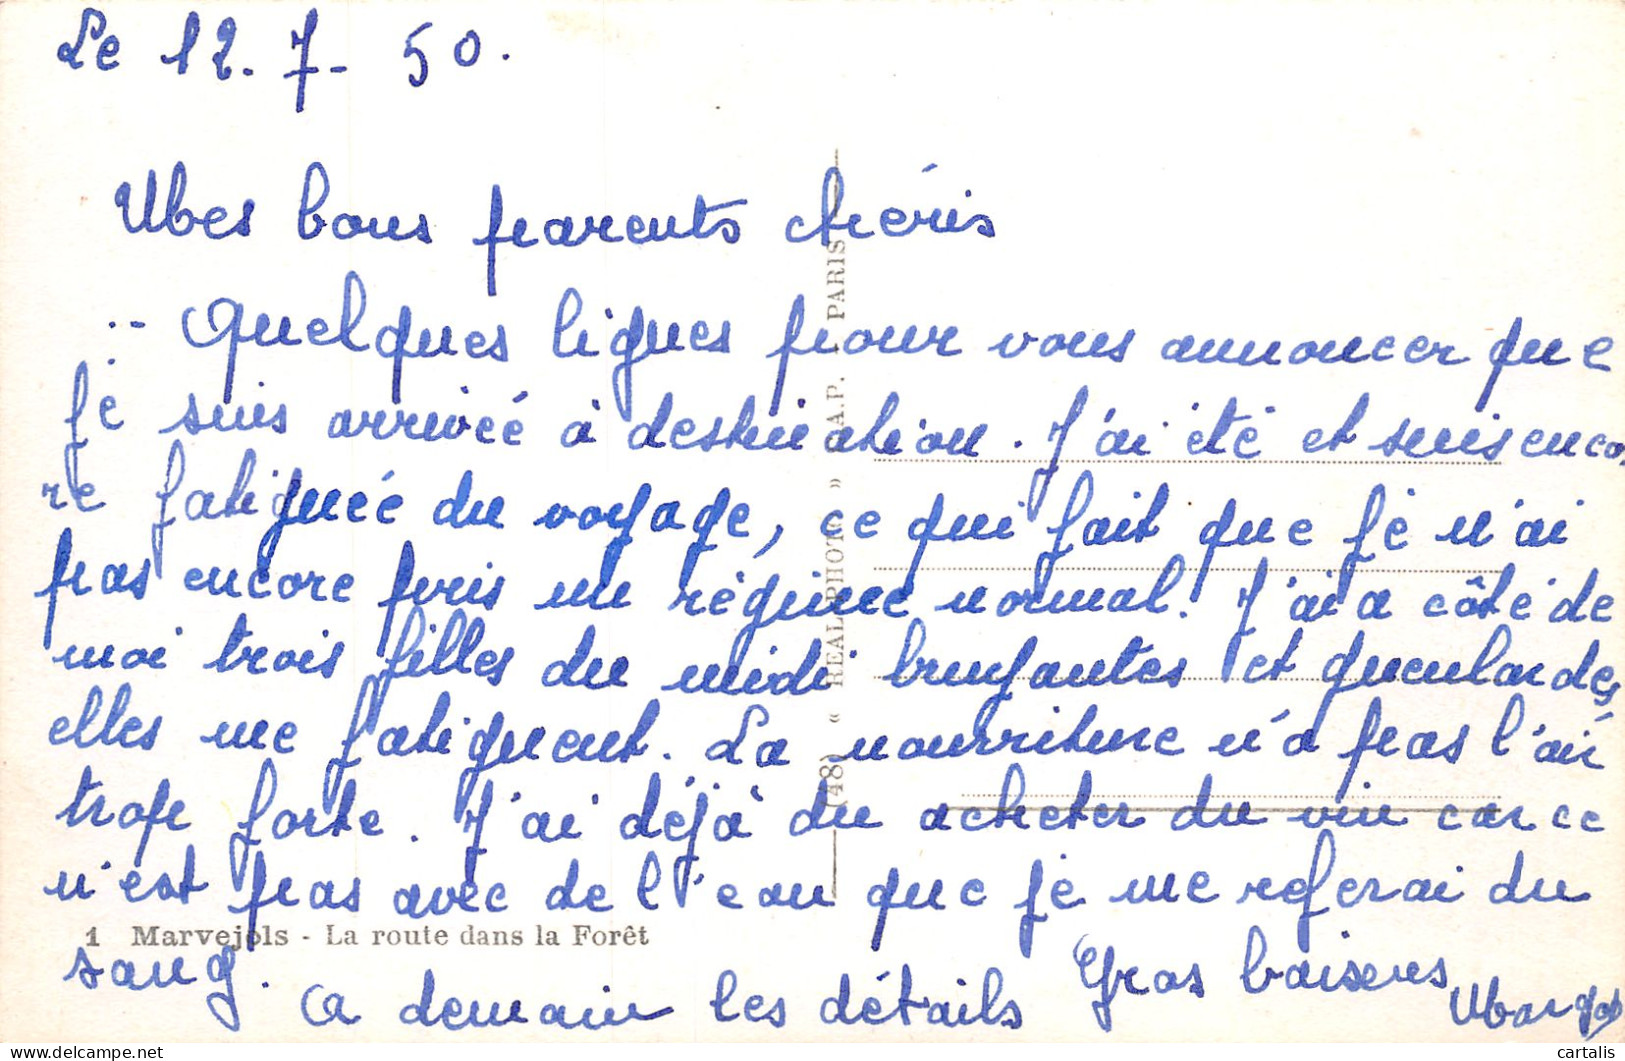 Le 12-7-50.
Mes bons parents chéris
Quelques lignes pour vous annoncer que
je suis arrivée à destination. J'ai été et suis enco
re fatiguée du voyage, ce qui fait que je n'ai
pas encore pris un régime normal. J'ai a côté de
moi trois filles du midi bruyantes et gueulardes,
elles me fatiguent. La nourriture n'a pas l'air
trop forte. J'ai déjà du acheter du vin car ce
n'est pas avec de l'eau que je me referai du
sang. A demain les détails Gros baisers
Margot
1 Marvejols - La route dans la Forêt
(48) « REALPHOTO » C.A.P. - PARIS
cartalis